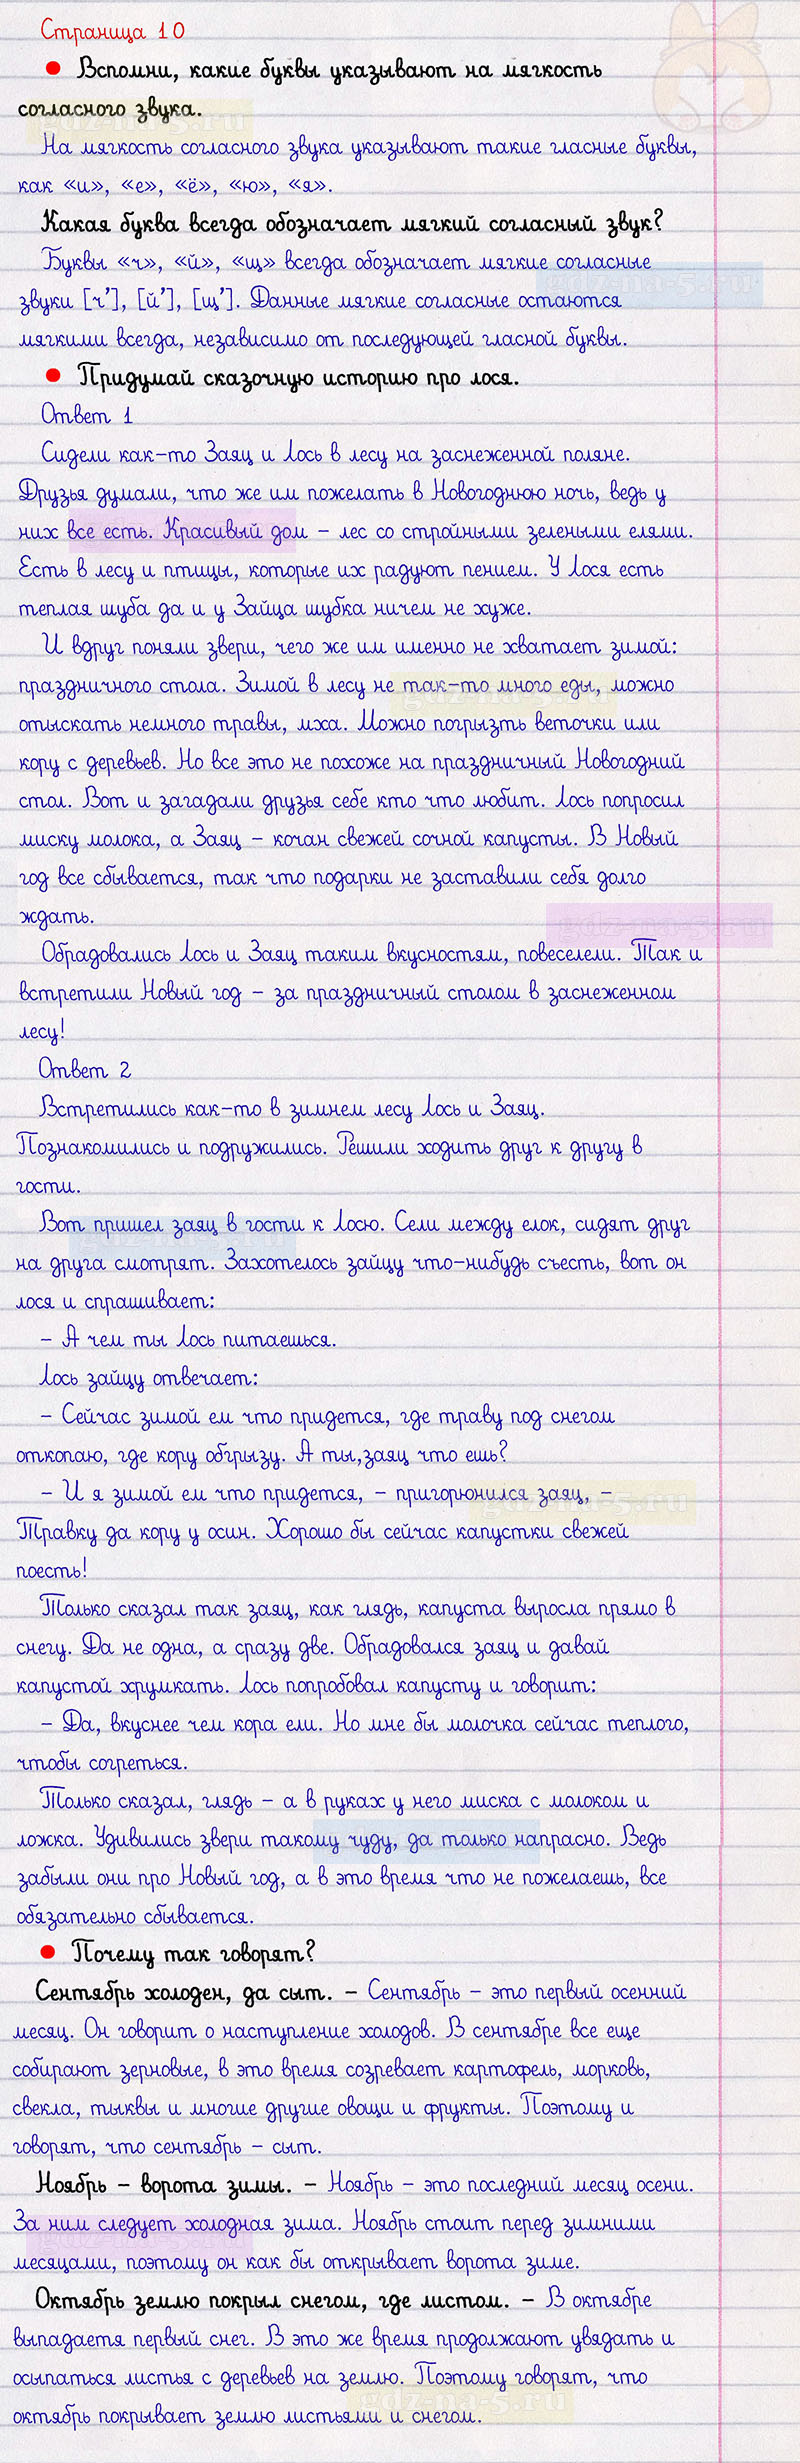 Страница 10
Вспомни, какие буквы указывают на мягкость
согласного звука.
На мягкость согласного звука указывают такие гласные буквы,
как «и», «е», «ё», «ю», «я».
Какая буква всегда обозначает мягкий согласный звук?
Буквы «ч», «й», «щ» всегда обозначает мягкие согласные
звуки [ч’], [й’], [щ’]. Данные мягкие согласные остаются
мягкими всегда, независимо от последующей гласной буквы.
Придумай сказочную историю про лося.
Ответ 1
Сидели как-то Заяц и Лось в лесу на заснеженной поляне.
Друзья думали, что же им пожелать в Новогоднюю ночь, ведь у
них все есть. Красивый дом – лес со стройными зелеными елями.
Есть в лесу и птицы, которые их радуют пением. У Лося есть
теплая шуба да и у Зайца шубка ничем не хуже.
И вдруг поняли звери, чего же им именно не хватает зимой:
праздничного стола. Зимой в лесу не так-то много еды, можно
отыскать немного травы, мха. Можно погрызть веточки или
кору с деревьев. Но все это не похоже на праздничный Новогодний
стол. Вот и загадали друзья себе кто что любит. Лось попросил
миску молока, а Заяц – кочан свежей сочной капусты. В Новый
год все сбывается, так что подарки не заставили себя долго
ждать.
Обрадовались Лось и Заяц таким вкусностям, повеселели. Так и
встретили Новый год – за праздничный столом в заснеженном
лесу!
Ответ 2
Встретились как-то в зимнем лесу Лось и Заяц.
Познакомились и подружились. Решили ходить друг к другу в
гости.
Вот пришел заяц в гости к Лосю. Сели между елок, сидят друг
на друга смотрят. Захотелось зайцу что-нибудь съесть, вот он
лося и спрашивает:
– А чем ты Лось питаешься.
Лось зайцу отвечает:
– Сейчас зимой ем что придется, где траву под снегом
откопаю, где кору обгрызу. А ты,заяц что ешь?
– И я зимой ем что придется, – пригорюнился заяц, –
Травку да кору у осин. Хорошо бы сейчас капустки свежей
поесть!
Только сказал так заяц, как глядь, капуста выросла прямо в
снегу. Да не одна, а сразу две. Обрадовался заяц и давай
капустой хрумкать. Лось попробовал капусту и говорит:
– Да, вкуснее чем кора ели. Но мне бы молочка сейчас теплого,
чтобы согреться.
Только сказал, глядь – а в руках у него миска с молоком и
ложка. Удивились звери такому чуду, да только напрасно. Ведь
забыли они про Новый год, а в это время что не пожелаешь, все
обязательно сбывается.
Почему так говорят?
Сентябрь холоден, да сыт. – Сентябрь – это первый осенний
месяц. Он говорит о наступление холодов. В сентябре все еще
собирают зерновые, в это время созревает картофель, морковь,
свекла, тыквы и многие другие овощи и фрукты. Поэтому и
говорят, что сентябрь – сыт.
Ноябрь – ворота зимы. – Ноябрь – это последний месяц осени.
За ним следует холодная зима. Ноябрь стоит перед зимними
месяцами, поэтому он как бы открывает ворота зиме.
Октябрь землю покрыл снегом, где листом. – В октябре
выпадаетя первый снег. В это же время продолжают увядать и
осыпаться листья с деревьев на землю. Поэтому говорят, что
октябрь покрывает землю листьями и снегом.